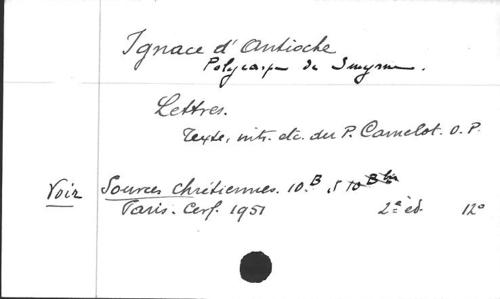 Ignace d'Antioche
Polycarpe de Smyrne.
Lettres.
Texte, intr. etc. du P. Camelot. O.P.
Voir Sources Chrétiennes. 10.B
Paris. Cerf. 1951 2e éd. 12°